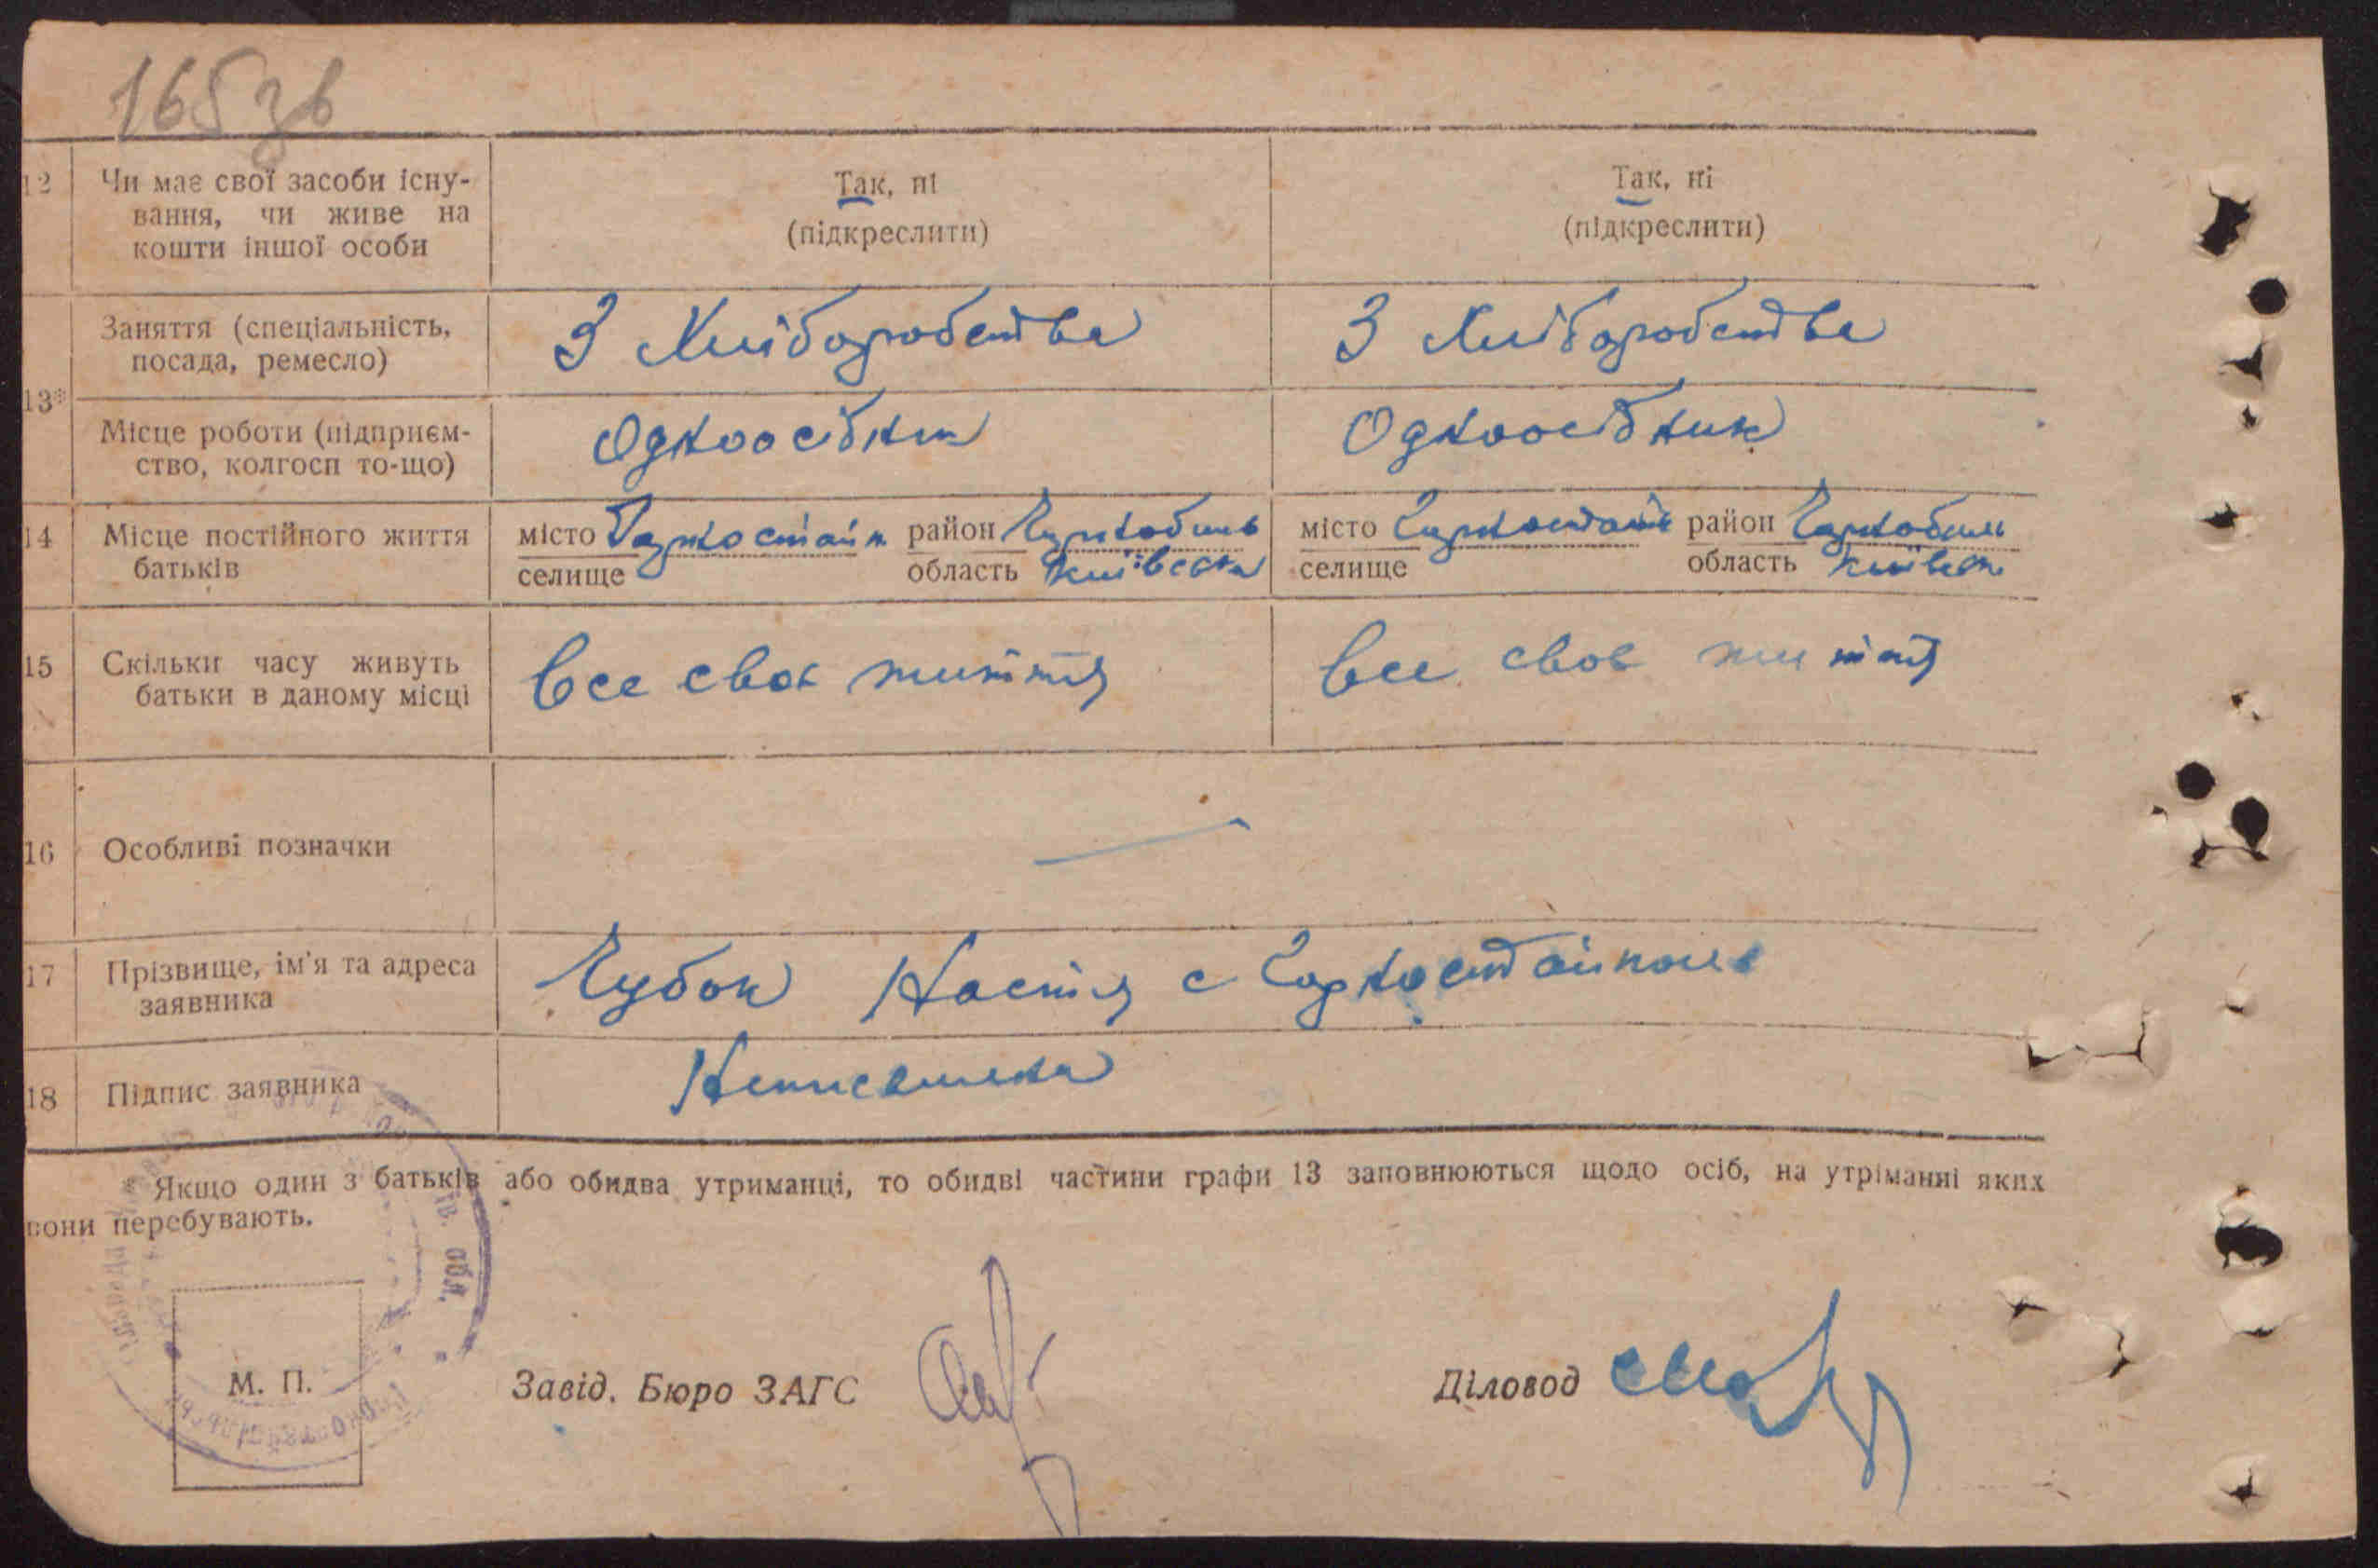 165 зв
12 Чи має свої засоби існу-
вання, чи живе на
кошти іншої особи
Так, ні
(підкреслити)
Так, ні
(підкреслити)
13*
Заняття (спеціальність,
посада, ремесло)
З Хліборобства
З Хліборобства
Місце роботи (підприєм-
ство, колгосп то-що)
Одноосібник
Одноосібник
14 Місце постійного життя
батьків
місто Горностайп район Чорнобиль
селище область Київська
місто Горностайп район Чорнобиль
селище область Київськ
15 Скільки часу живуть
батьки в даному місці
все своє життя
все своє життя
16 Особливі позначки
—
17 Прізвище, ім'я та адреса
заявника
Чубок Настя с Горностайполь
18 Підпис заявника
Неписьмена
* Якщо один з батьків або обидва утриманці, то обидві частини графи 13 заповнюються щодо осіб, на утріманні яких
вони перебувають.
обл.
М. П.
Завід. Бюро ЗАГС
Діловод